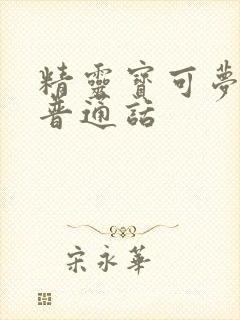 精靈寶可夢
普通話
宋永華